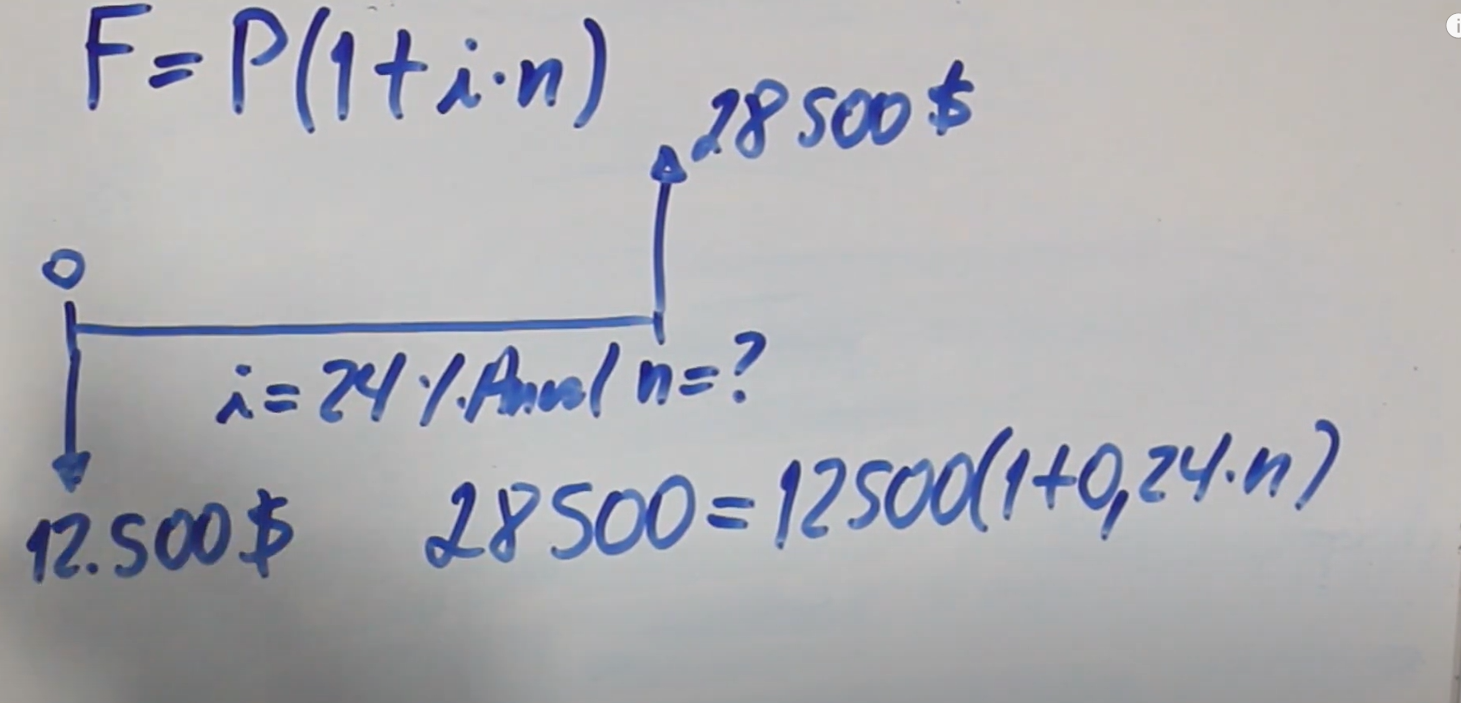 F=P(1+i·n)
28500$
0
i=24%Anual n=?
12.500$
28500=12500(1+0,24·n)